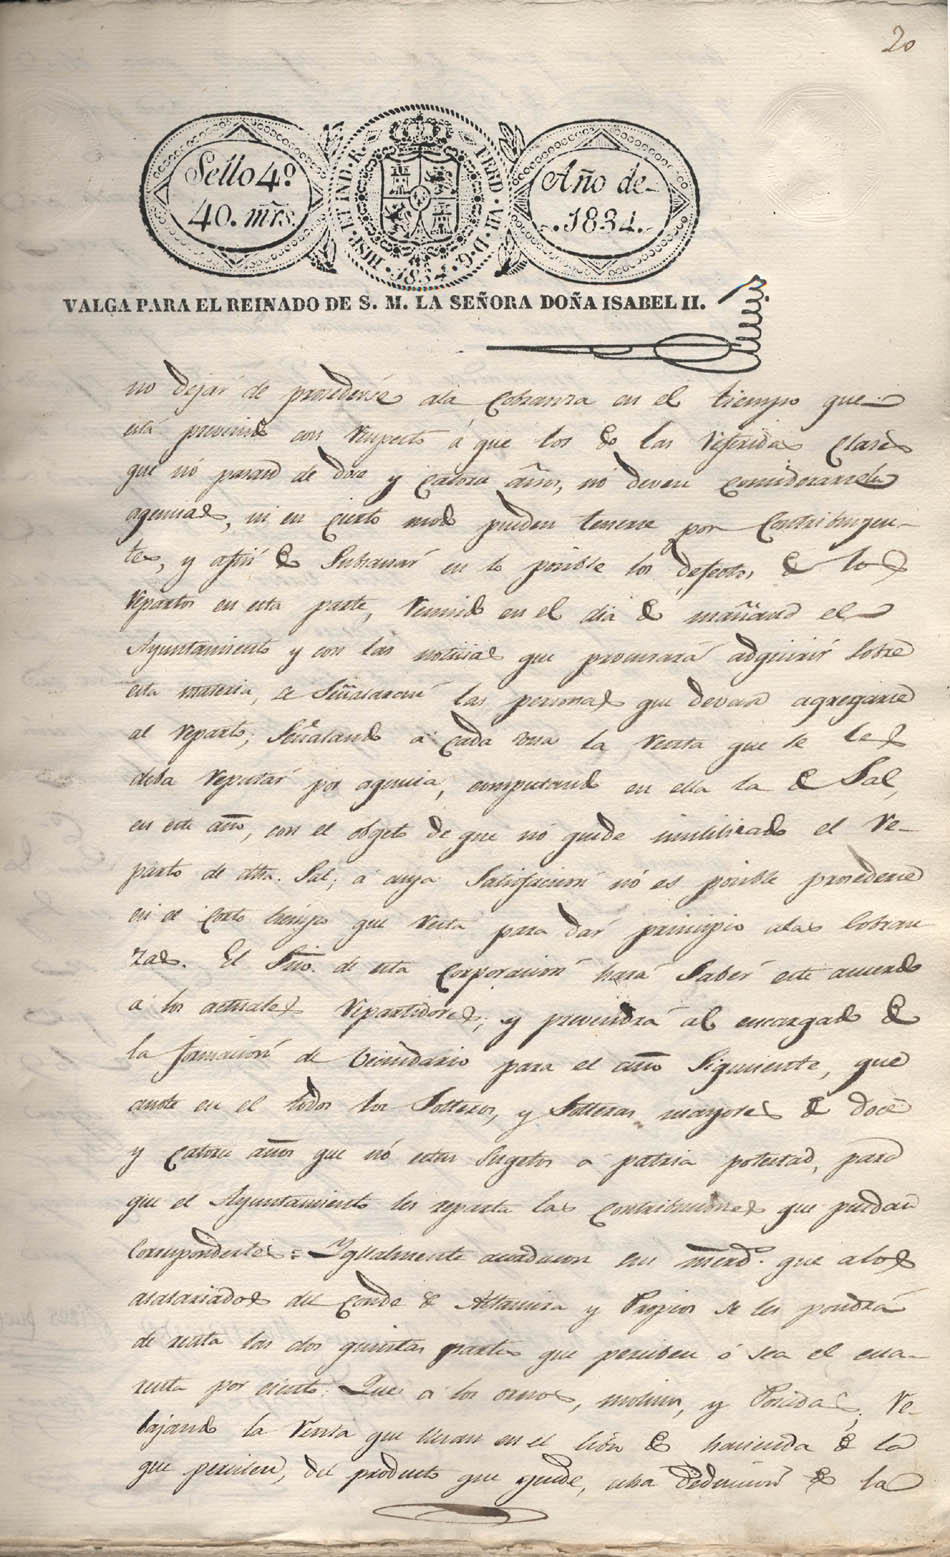 20
Sello 4º
40. mrs.
HISP. ET IND. R.
FERD. VII. D. G.
1834
Año de
1834.
VALGA PARA EL REINADO DE S. M. LA SEÑORA DOÑA ISABEL II.
no dejar de procederse ala Cobranza en el tiempo que
está prevenido con respecto á que los de las referidas Clases
que no pasan de doce y catorce años, no deven considerarseles
agencias, ni en cierto modo pueden tenerse por Contribuyen-
tes, y afin de Subsanar en lo posible los defectos de los
repartos en esta parte, reunido en el dia de mañana el
Ayuntamiento y con las noticias que procurará adquirir sobre
esta materia, se Señalarán las personas que devan agregarse
al reparto, Señalando á cada una la renta que se les
deba reputar por agencia, computando en ella la de Sal,
en este año, con el objeto de que no quede inutilizado el re-
parto de dha. Sal, a cuya Satisfaccion no es posible procederse
en el corto tiempo que resta para dár principio alas cobran
zas. El Srio. de esta Corporacion hará Saber este acuerdo
a los actuales repartidores, y prevendrá al encargado de
la formacion de Vecindario para el año Siguiente, que
anote en el todos los Solteros, y Solteras mayores de doce
y catorce años que nó esten sugetos a patria potestad, para
que el Ayuntamiento les reparta las contribuciones que puedan
Corresponderles = Igualmente acordaron sus mercds. que a los
asalariados del Conde de Altamira y Propios se les pondrá
de renta las dos quintas partes que perciben ó sea el cua-
renta por ciento: Que a los ornos, molinos, y Posadas, re-
bajando la renta que llevan en el libro de hacienda de la
que perciben, del producto que quede, echa deduccion de la